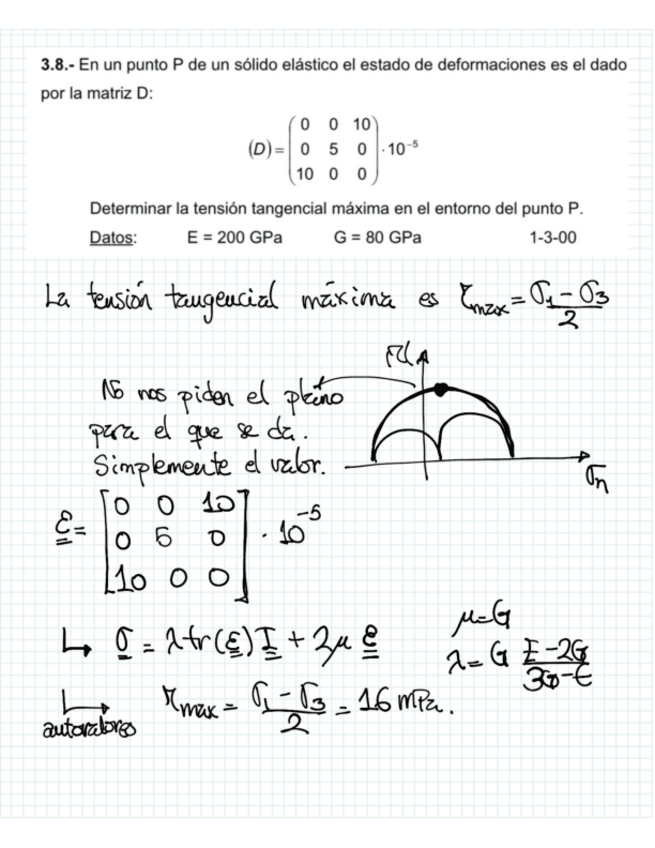 3.8.- En un punto P de un sólido elástico el estado de deformaciones es el dado
por la matriz D:
(D) = ( 0 0 10
0 5 0
10 0 0 ) · 10⁻⁵
Determinar la tensión tangencial máxima en el entorno del punto P.
Datos: E = 200 GPa G = 80 GPa 1-3-00
La tensión tangencial máxima es τmax = (σ1 - σ3)/2
|τ|
No nos piden el plano
para el que se da.
Simplemente el valor.
σn
ε = [ 0 0 10
0 5 0
10 0 0 ] · 10⁻⁵
μ=G
↳ σ = λ tr(ε) I + 2μ ε
λ = G (E-2G)/(3G-E)
↳ autovalores τmax = (σ1 - σ3)/2 = 16 MPa.